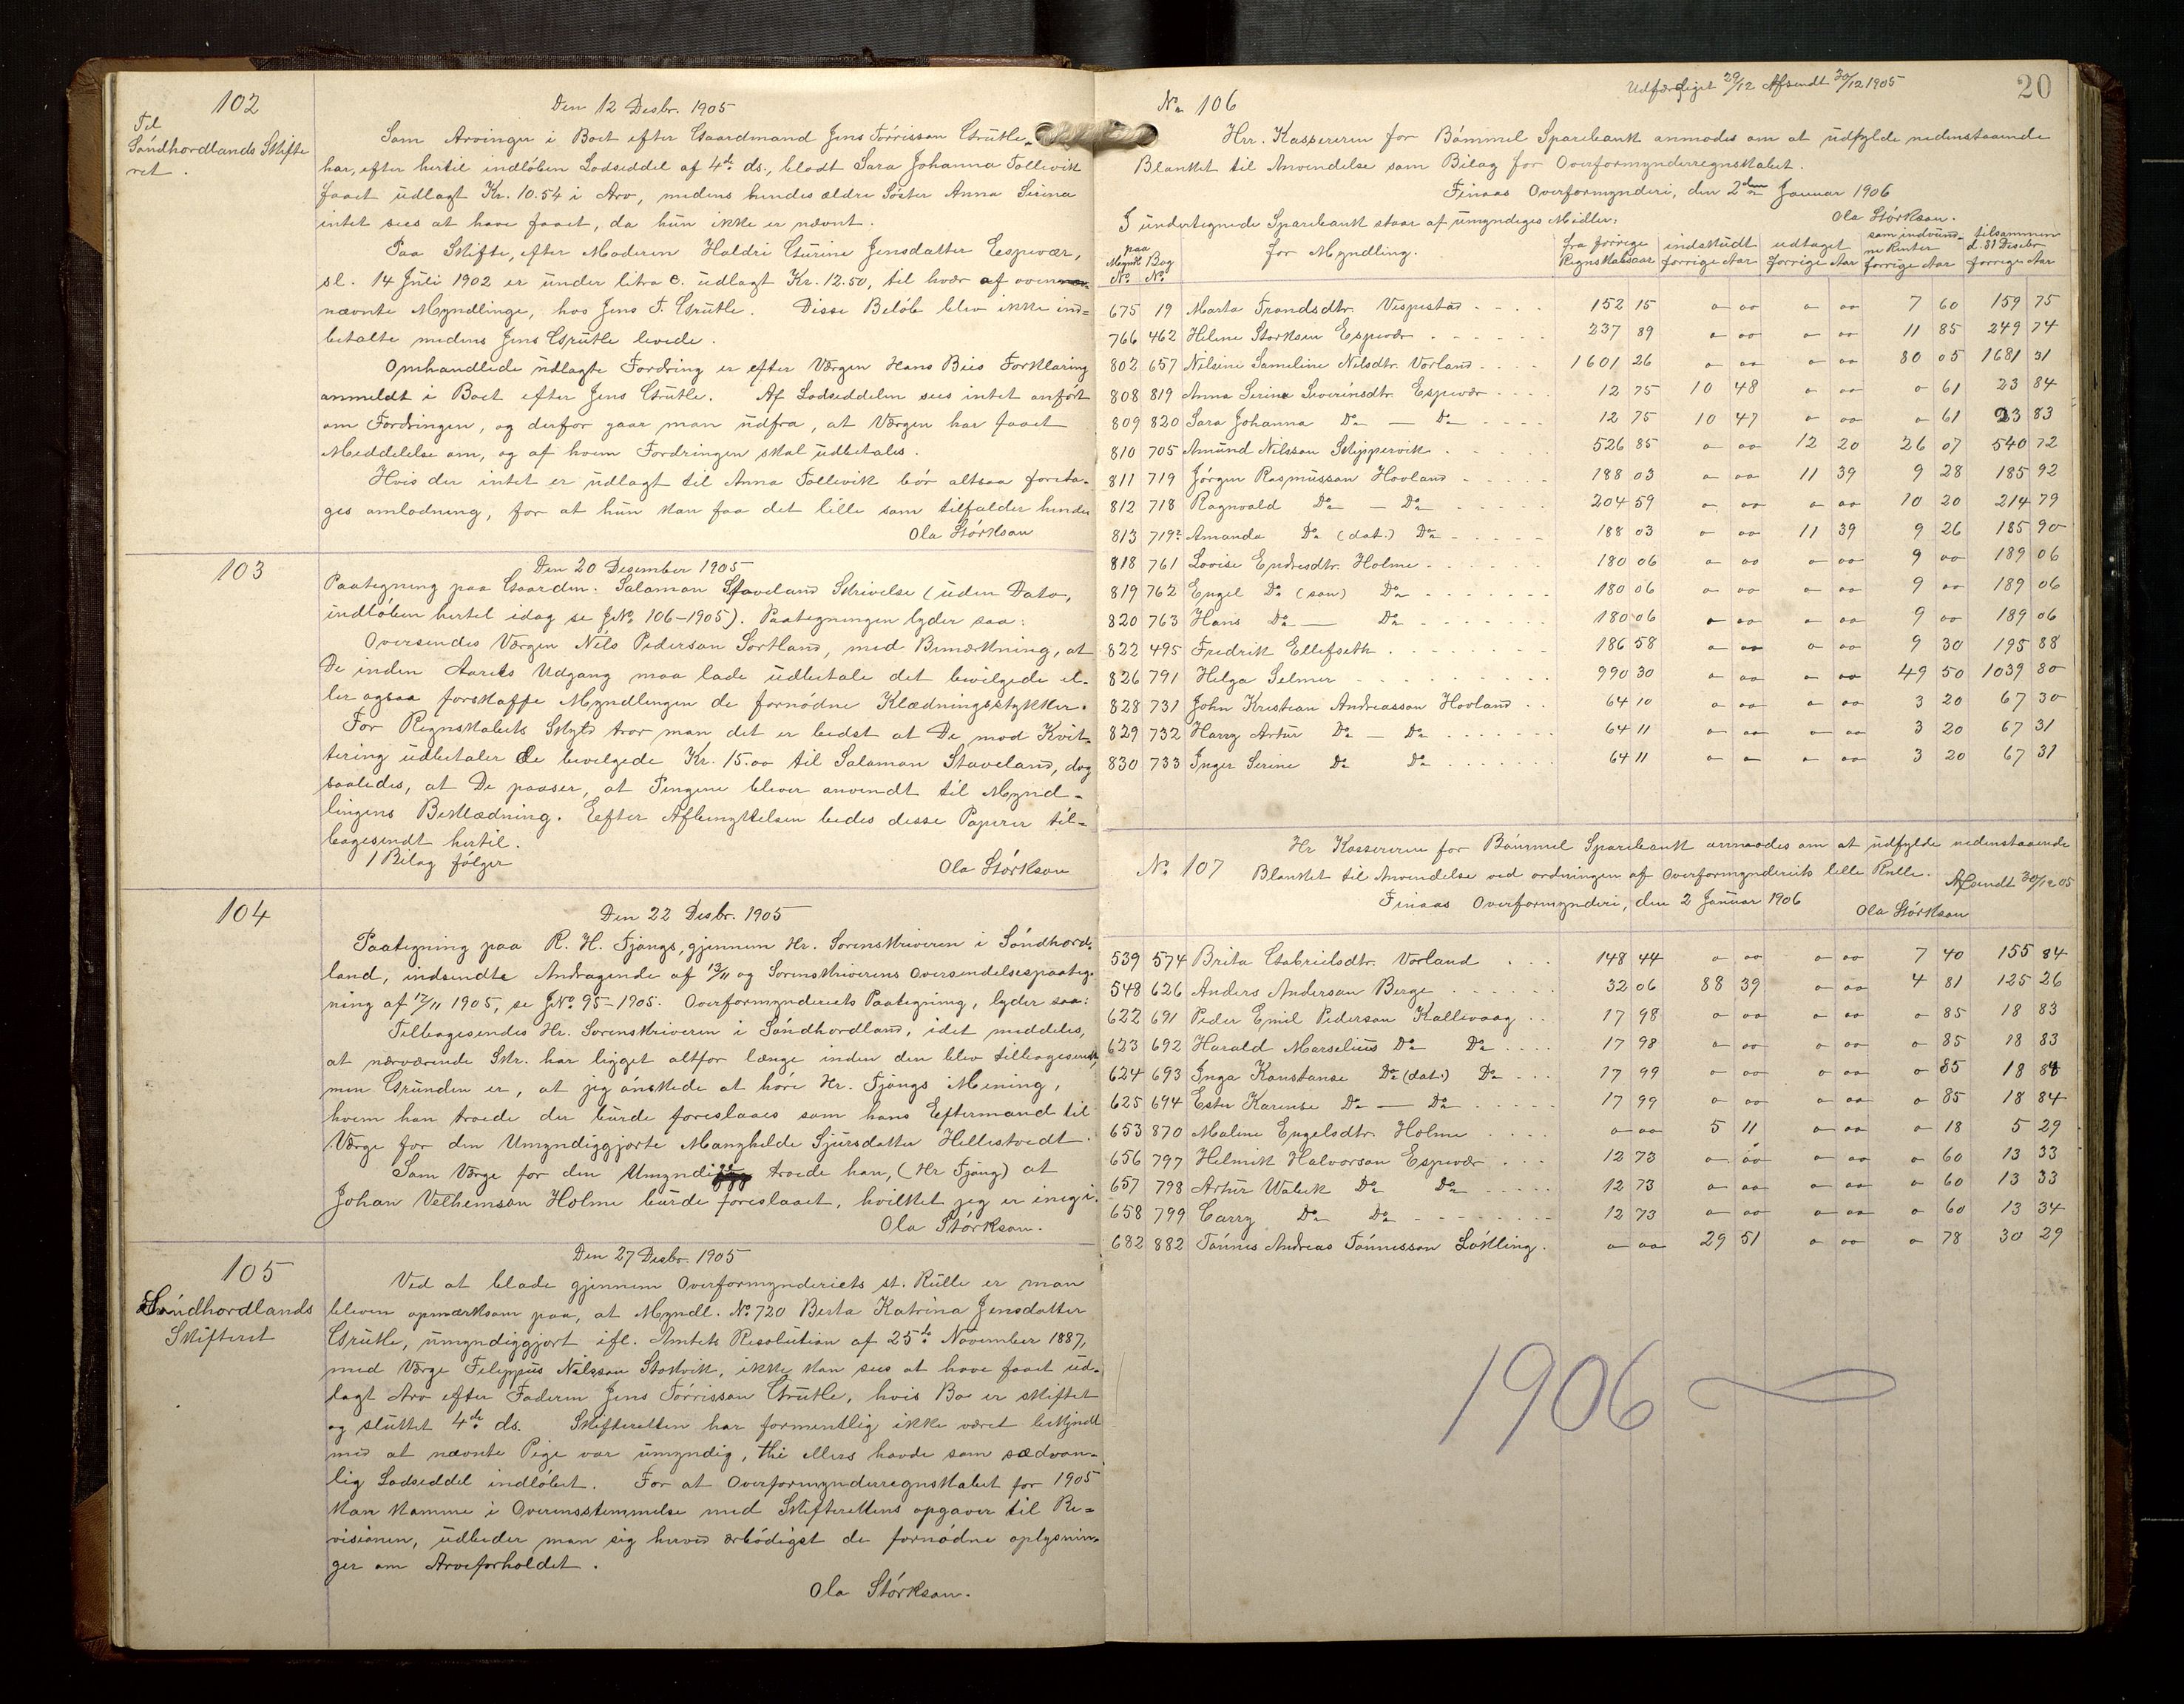 102
Til
Söndhordlands Skifte
ret.
Den 12 Desbr. 1905
Som Arvinger i Boet efter Gaardmand Jens Törrisson Grutle,
har, efter hertil indlöben Lodseddel af 4de ds., blodt Sara Johanna Follevik
faaet udlagt Kr. 10.54 i Arv, medens hendes ældre Söster Anna Serina
intet sees at have faaet, da hun ikke er nævnt.
Paa Skifte, efter Moderen Haldri Gurine Jensdatter Espevær,
sl. 14 Juli 1902 er under litra c. udlagt Kr. 12.50, til hvær af oven
nævnte Myndlinge, hos Jens T. Grutle. Disse Belöb blev ikke ind=
betalte medens Jens Grutle levede.
Omhandlede udlagte Fordring er efter Værgen Hans Bees Forklaring
anmeldt i Boet efter Jens Grutle. Af Lodseddelen sees intet anfört
om Fordringen, og derfor gaar man udfra, at Værgen har faaet
Meddelelse om, og af hvem Fordringen skal udbetales.
Hvis der intet er udlagt til Anna Follevik bör altsaa foreta-
ges omlodning, for at hun kan faa det lille som tilfalder hende
Ola Störkson
103
Den 20 Desember 1905
Paategning paa Gaardm. Salamon Staveland Skrivelse (uden Dato,
indlöben hertel idag se JNo. 106-1905). Paategningen lyder saa:
Oversendes Værgen Nils Pederson Sortland, med Bemærkning, at
De inden Aarets Udgang maa lade udbetale det bevilgede el-
ler ogsaa forskaffe Myndlingen de fornödne Klædningsstykker.
For Regnskabets Skyld tror man det er bedst at De mod Kvit-
tering udbetaler de bevelgede Kr. 15.00 til Salamon Staveland, dog
saaledes, at De paaser, at Pengene bliver anvendt til Mynd-
lingens Beklædning. Eefter Afbenyttelsen bedes desse Papirer til-
bagesendt hertil.
1 Bilag fölger
Ola Störkson
104
Den 22 Desbr. 1905
Paategning paa R. H. Fjöngs, gjennem Hr. Sorenskriveren i Söndhord-
land, indsendte Andragende af 13/11 og Sorenskriverens Oversendelsespaateg-
ning af 17/11 1905, se JNo. 95-1905. Overformynderiets Paategning, lyder saa:
Tilbagesendes Hr. Sorenskriveren i Söndhordland, idet meddeles,
at nærværende Skr. har ligget altfor længe inden den blev tilbagesendt,
men Grunden er, at jeg önskede at höre Hr. Fjöngs Mening,
hvem han troede der burde foreslaaes som hans Eftermand til
Værge for den Umyndiggjorte Manghelde Sjursdatter Hellestvedt.
Som Værge for den Umyndige troede han, (Hr Fjöng) at
Johan Velhemson Holme burde foreslaaet, hvilket jeg er inegi.
Ola Störkson.
105
Söndhordlands
Skifteret
Den 27 Desbr. 1905
Ved at blade gjennem Overformynderiets st. Rulle er man
bleven opmærksom paa, at Myndl. No. 720 Berta Katrina Jensdatter
Grutle, umyndiggjort ifl. Amtets Resolution af 25de November 1887,
med Værge Filippus Nilsson Stokvik, ikke kan sees at have faaet ud-
lagt Arv efter Faderen Jens Törrisson Grutle, hvis Bo er skiftet
og sluttet 4de ds. Skifteretten har formentlig ikke været bekjendt
med at nævnte Pige var umyndig, thi ellers havde som sædvan-
lig Lodseddel indlöbet. For at Overformynderregnskabet for 1905
kan komme i Overensstemmelse med Skifterettens opgaver til Re-
visionen, udbeder man sig herved ærbödigst de fornödne oplysnin-
ger om Arveforholdet.
Ola Störkson.
Udfærdiget 29/12 Afsendt 30/12 1905
20
No 106
Hrr. Kassereren for Bömmel Sparebank anmodes om at udfylde nedenstaaende
Blanket til Anvendelse som Bilag for Overformynderregnskabet.
Finaas Overformynderi, den 2den Januar 1906
Ola Störkson.
I undertegnede Sparebank staar af umyndiges Midler:
paa Myndl. No. Bog No. for Myndling. fra forrige Regnskabsaar indskudt forrige Aar udtaget forrige Aar som indvundne Renter forrige Aar tilsammen d. 31 Desebr forrige Aar
675 19 Marta Trondsdtr. Vespestad 152 15 0 00 0 00 7 60 159 75
766 462 Helene Storksen Espevær 237 89 0 00 0 00 11 85 249 74
802 657 Nilsine Sameline Nilsdtr. Vorland 1601 26 0 00 0 00 80 05 1681 31
808 819 Anna Serine Severinsdtr. Espevær 12 75 10 48 0 00 0 61 23 84
809 820 Sara Johanna Do — Do 12 75 10 47 0 00 0 61 23 83
810 705 Amund Nilsson Skippervik 526 85 0 00 12 20 26 07 540 72
811 719 Jörgen Rasmusson Hovland 188 03 0 00 11 39 9 28 185 92
812 718 Ragnvald Do — Do 204 59 0 00 0 00 10 20 214 79
813 719² Amanda Do (dat.) Do 188 03 0 00 11 39 9 26 185 90
818 761 Lovise Endresdtr. Holme 180 06 0 00 0 00 9 00 189 06
819 762 Engel Do (son) Do 180 06 0 00 0 00 9 00 189 06
820 763 Hans Do — Do 180 06 0 00 0 00 9 00 189 06
822 495 Fredrik Ellefseth 186 58 0 00 0 00 9 30 195 88
826 791 Helga Selmer 990 30 0 00 0 00 49 50 1039 80
828 731 John Kristian Andreasson Hovland 64 10 0 00 0 00 3 20 67 30
829 732 Harry Artur Do — Do 64 11 0 00 0 00 3 20 67 31
830 733 Inger Serine Do Do 64 11 0 0 0 00 3 20 67 31
No. 107
Hr Kassereren for Bömmel Sparebank anmodes om at udfylde nedenstaaende
Blanket til Anvendelse ved ordningen af Overformynderiets lille Rulle. Afsendt 30/12 05
Finaas Overformynderi, den 2 Januar 1906
Ola Störkson
539 574 Brita Gabrielsdtr. Vorland 148 44 0 00 0 00 7 40 155 84
548 626 Anders Anderson Berge 32 06 88 39 0 00 4 81 125 26
622 691 Peder Emil Pederson Kallevaag 17 98 0 00 0 00 0 85 18 83
623 692 Harald Marselius Do Do 17 98 0 00 0 00 0 85 18 83
624 693 Inga Konstanse Do (dat.) Do 17 99 0 00 0 00 0 85 18 84
625 694 Ester Karense Do — Do 17 99 0 00 0 00 0 85 18 84
653 870 Malene Engelsdtr. Holme 0 00 5 11 0 00 0 18 5 29
656 797 Helmik Halvorson Espevær 12 73 0 00 0 00 0 60 13 33
657 798 Artur Do Do 12 73 0 00 0 00 0 60 13 33
658 799 Carry Do Do 12 73 0 00 0 00 0 60 13 34
682 882 Tönnes Andreas Tönnesson Lökling 0 00 29 51 0 00 0 78 30 29
1906